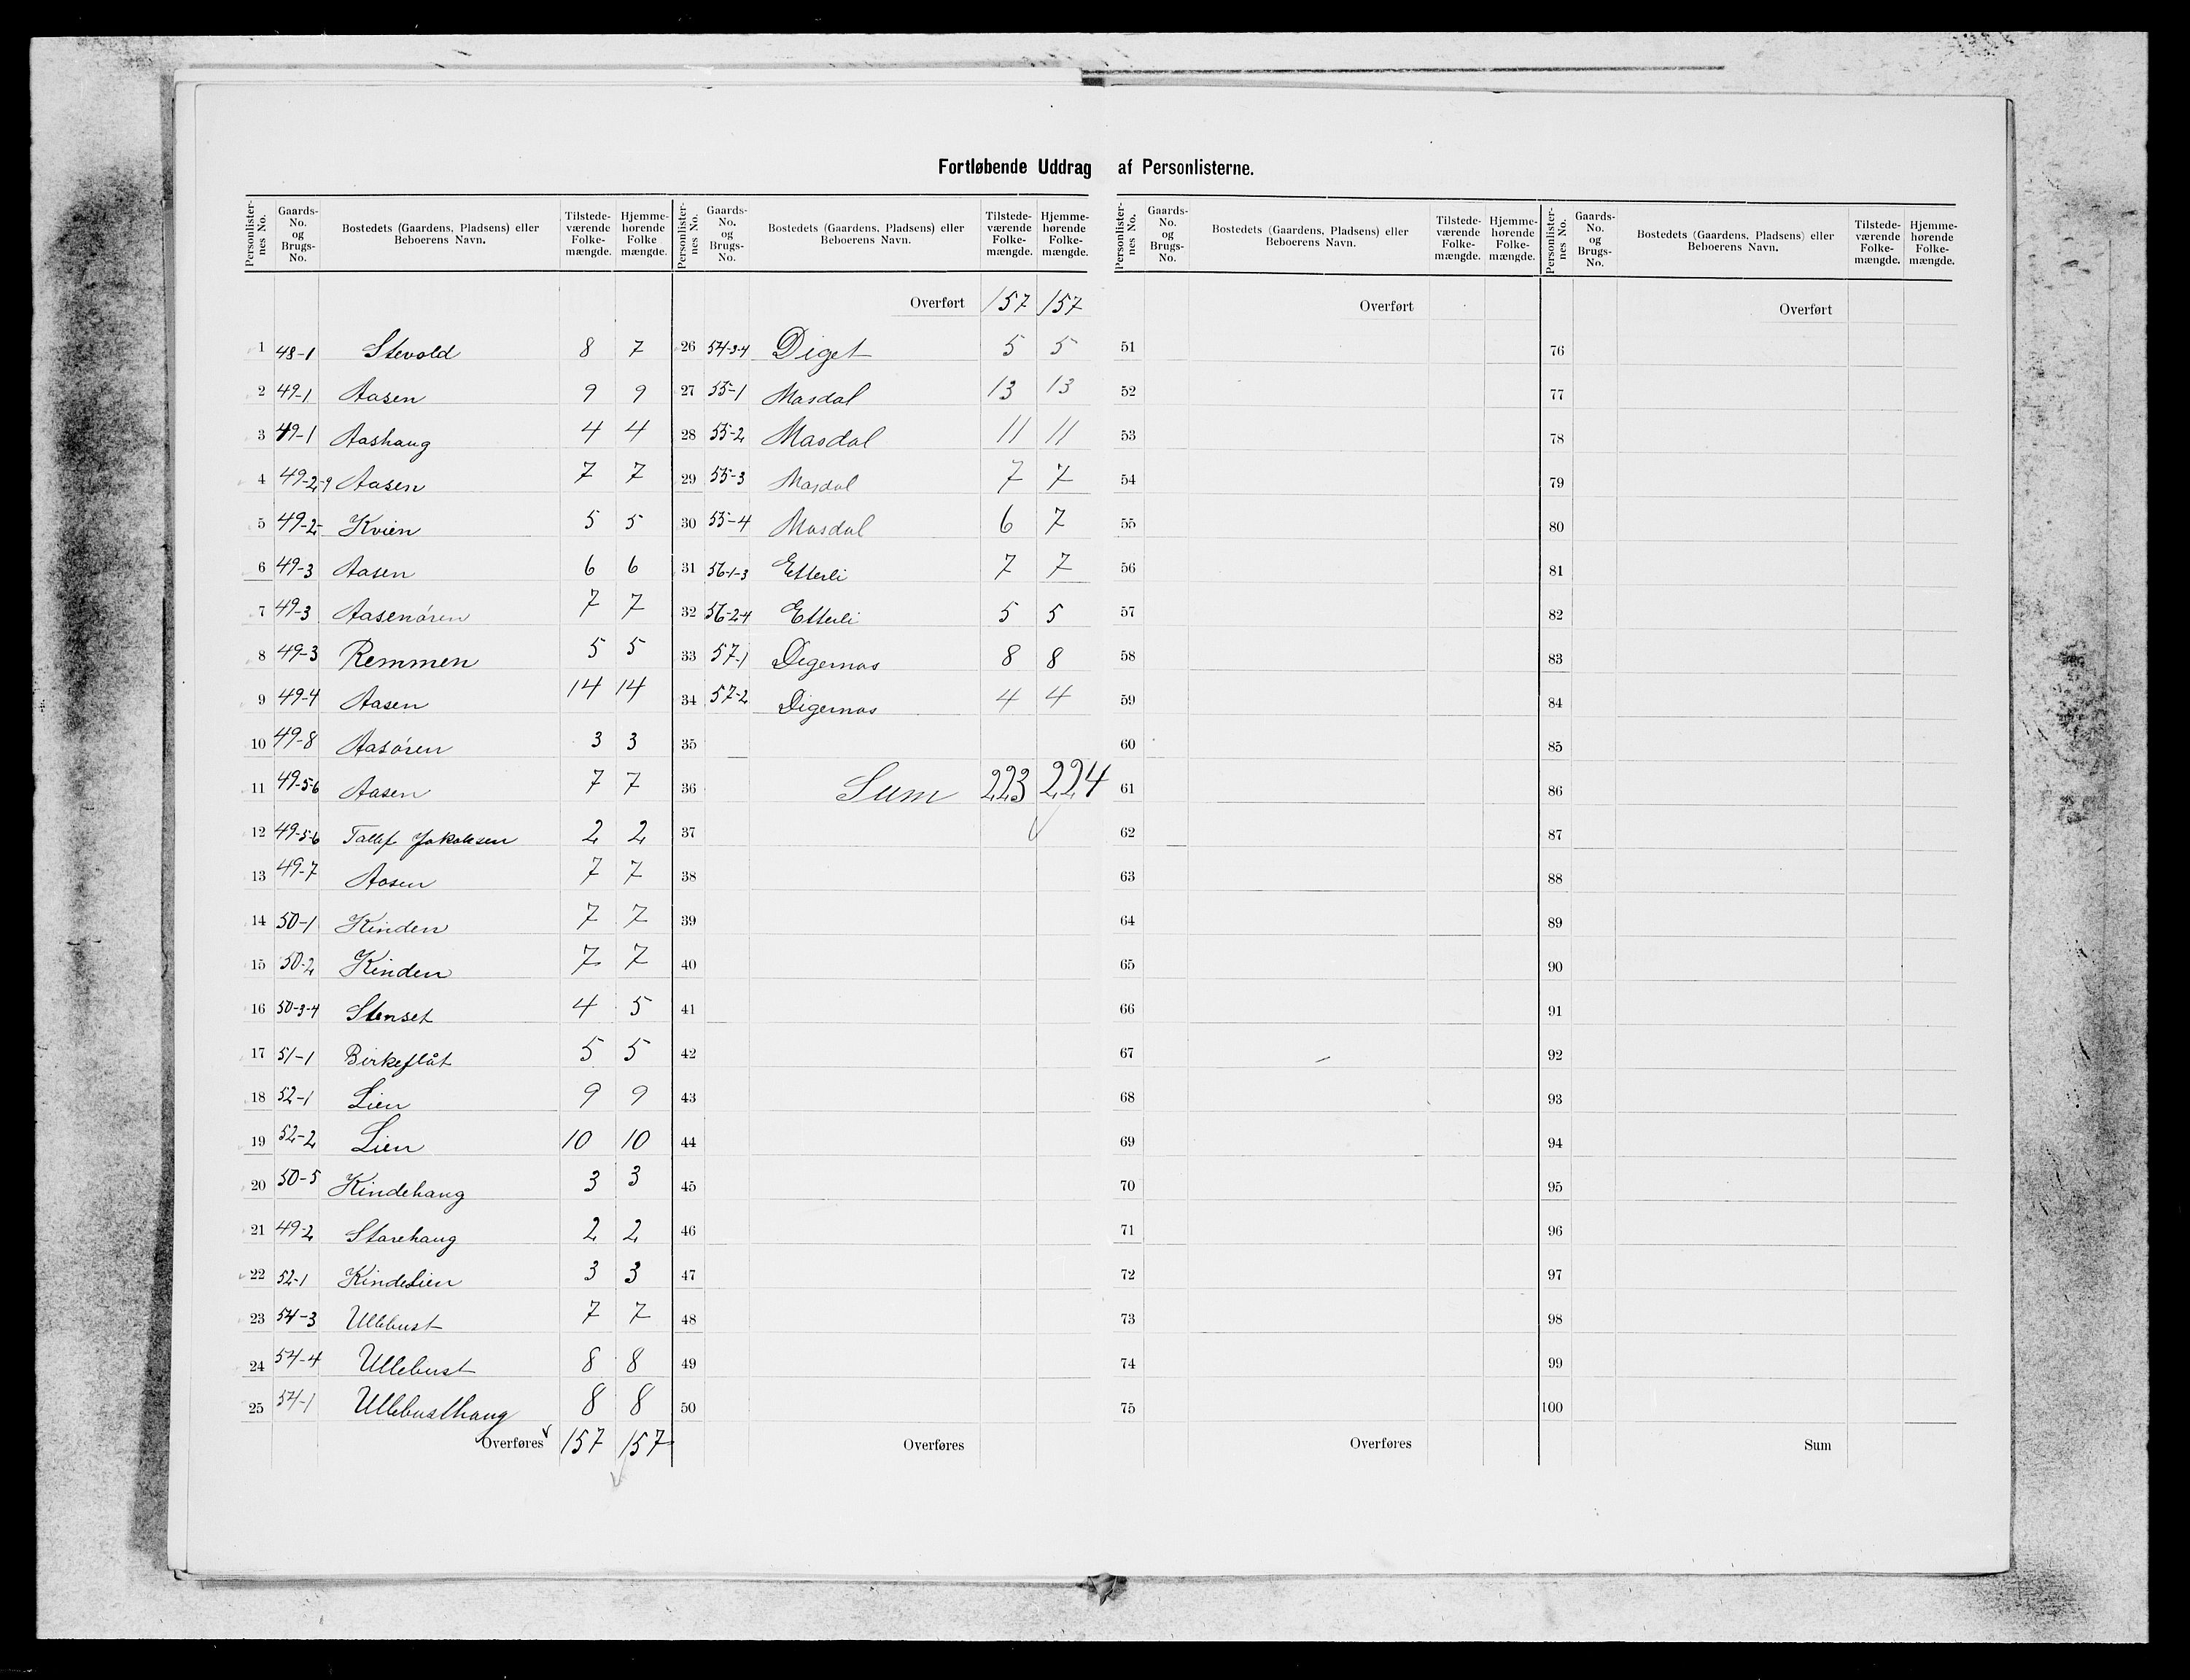 Fortløbende Uddrag af Personlisterne.
Personlister-nes No. Gaards-No. og Brugs-No. Bostedets (Gaardens, Pladsens) eller Beboerens Navn. Tilstede-værende Folke-mængde. Hjemme-hørende Folke mængde.
1 48-1 Stevold 8 7
2 49-1 Aasen 9 9
3 49-1 Aashaug 4 4
4 49-2-9 Aasen 7 7
5 49-2- Kvien 5 5
6 49-3 Aasen 6 6
7 49-3 Aasenören 7 7
8 49-3 Remmen 5 5
9 49-4 Aasen 14 14
10 49-8 Aasören 3 3
11 49-5-6 Aasen 7 7
12 49-5-6 Tallef Jakobsen 2 2
13 49-7 Aasen 7 7
14 50-1 Kinden 7 7
15 50-2 Kinden 7 7
16 50-3-4 Stenset 4 5
17 51-1 Birkeflåt 5 5
18 52-1 Lien 9 9
19 52-2 Lien 10 10
20 50-5 Kindehaug 3 3
21 49-2 Starehaug 2 2
22 52-1 Kindelien 3 3
23 54-3 Ullebust 7 7
24 54-4 Ullebust 8 8
25 54-1 Ullebusthaug 8 8
Overføres 157 157
Personlister-nes No. Gaards-No. og Brugs-No. Bostedets (Gaardens, Pladsens) eller Beboerens Navn. Tilstede-værende Folke-mængde. Hjemme-hørende Folke-mængde.
Overført 157 157
26 54-3-4 Diget 5 5
27 55-1 Masdal 13 13
28 55-2 Masdal 11 11
29 55-3 Masdal 7 7
30 55-4 Masdal 6 7
31 56-1-3 Etterli 7 7
32 56-2-4 Etterli 5 5
33 57-1 Digernas 8 8
34 57-2 Digernas 4 4
35
36 Sum 223 224
37
38
39
40
41
42
43
44
45
46
47
48
49
50
Overføres
Personlister-nes No. Gaards-No. og Brugs-No. Bostedets (Gaardens, Pladsens) eller Beboerens Navn. Tilstede-værende Folke-mængde. Hjemme-hørende Folke-mængde.
Overført
51
52
53
54
55
56
57
58
59
60
61
62
63
64
65
66
67
68
69
70
71
72
73
74
75
Overføres
Personlister-nes No. Gaards-No. og Brugs-No. Bostedets (Gaardens, Pladsens) eller Beboerens Navn. Tilstede-værende Folke-mængde. Hjemme-hørende Folke-mængde.
Overført
76
77
78
79
80
81
82
83
84
85
86
87
88
89
90
91
92
93
94
95
96
97
98
99
100
Sum